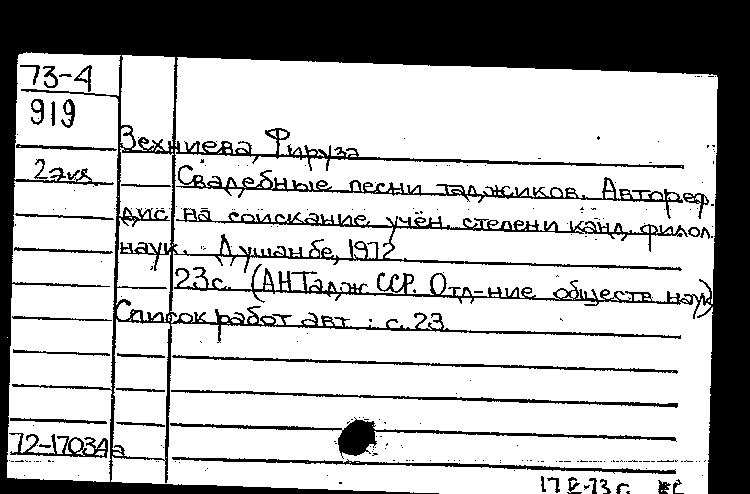 73-4
919
Зехниева, Фируза
2 экз
Свадебные песни таджиков. Автореф.
дис на соискание учён. степени канд. филол.
наук. Душанбе, 1972.
23с. (АН Тадж ССР. Отд-ние обществ наук)
Список работ авт.: с. 23.
72-17034а